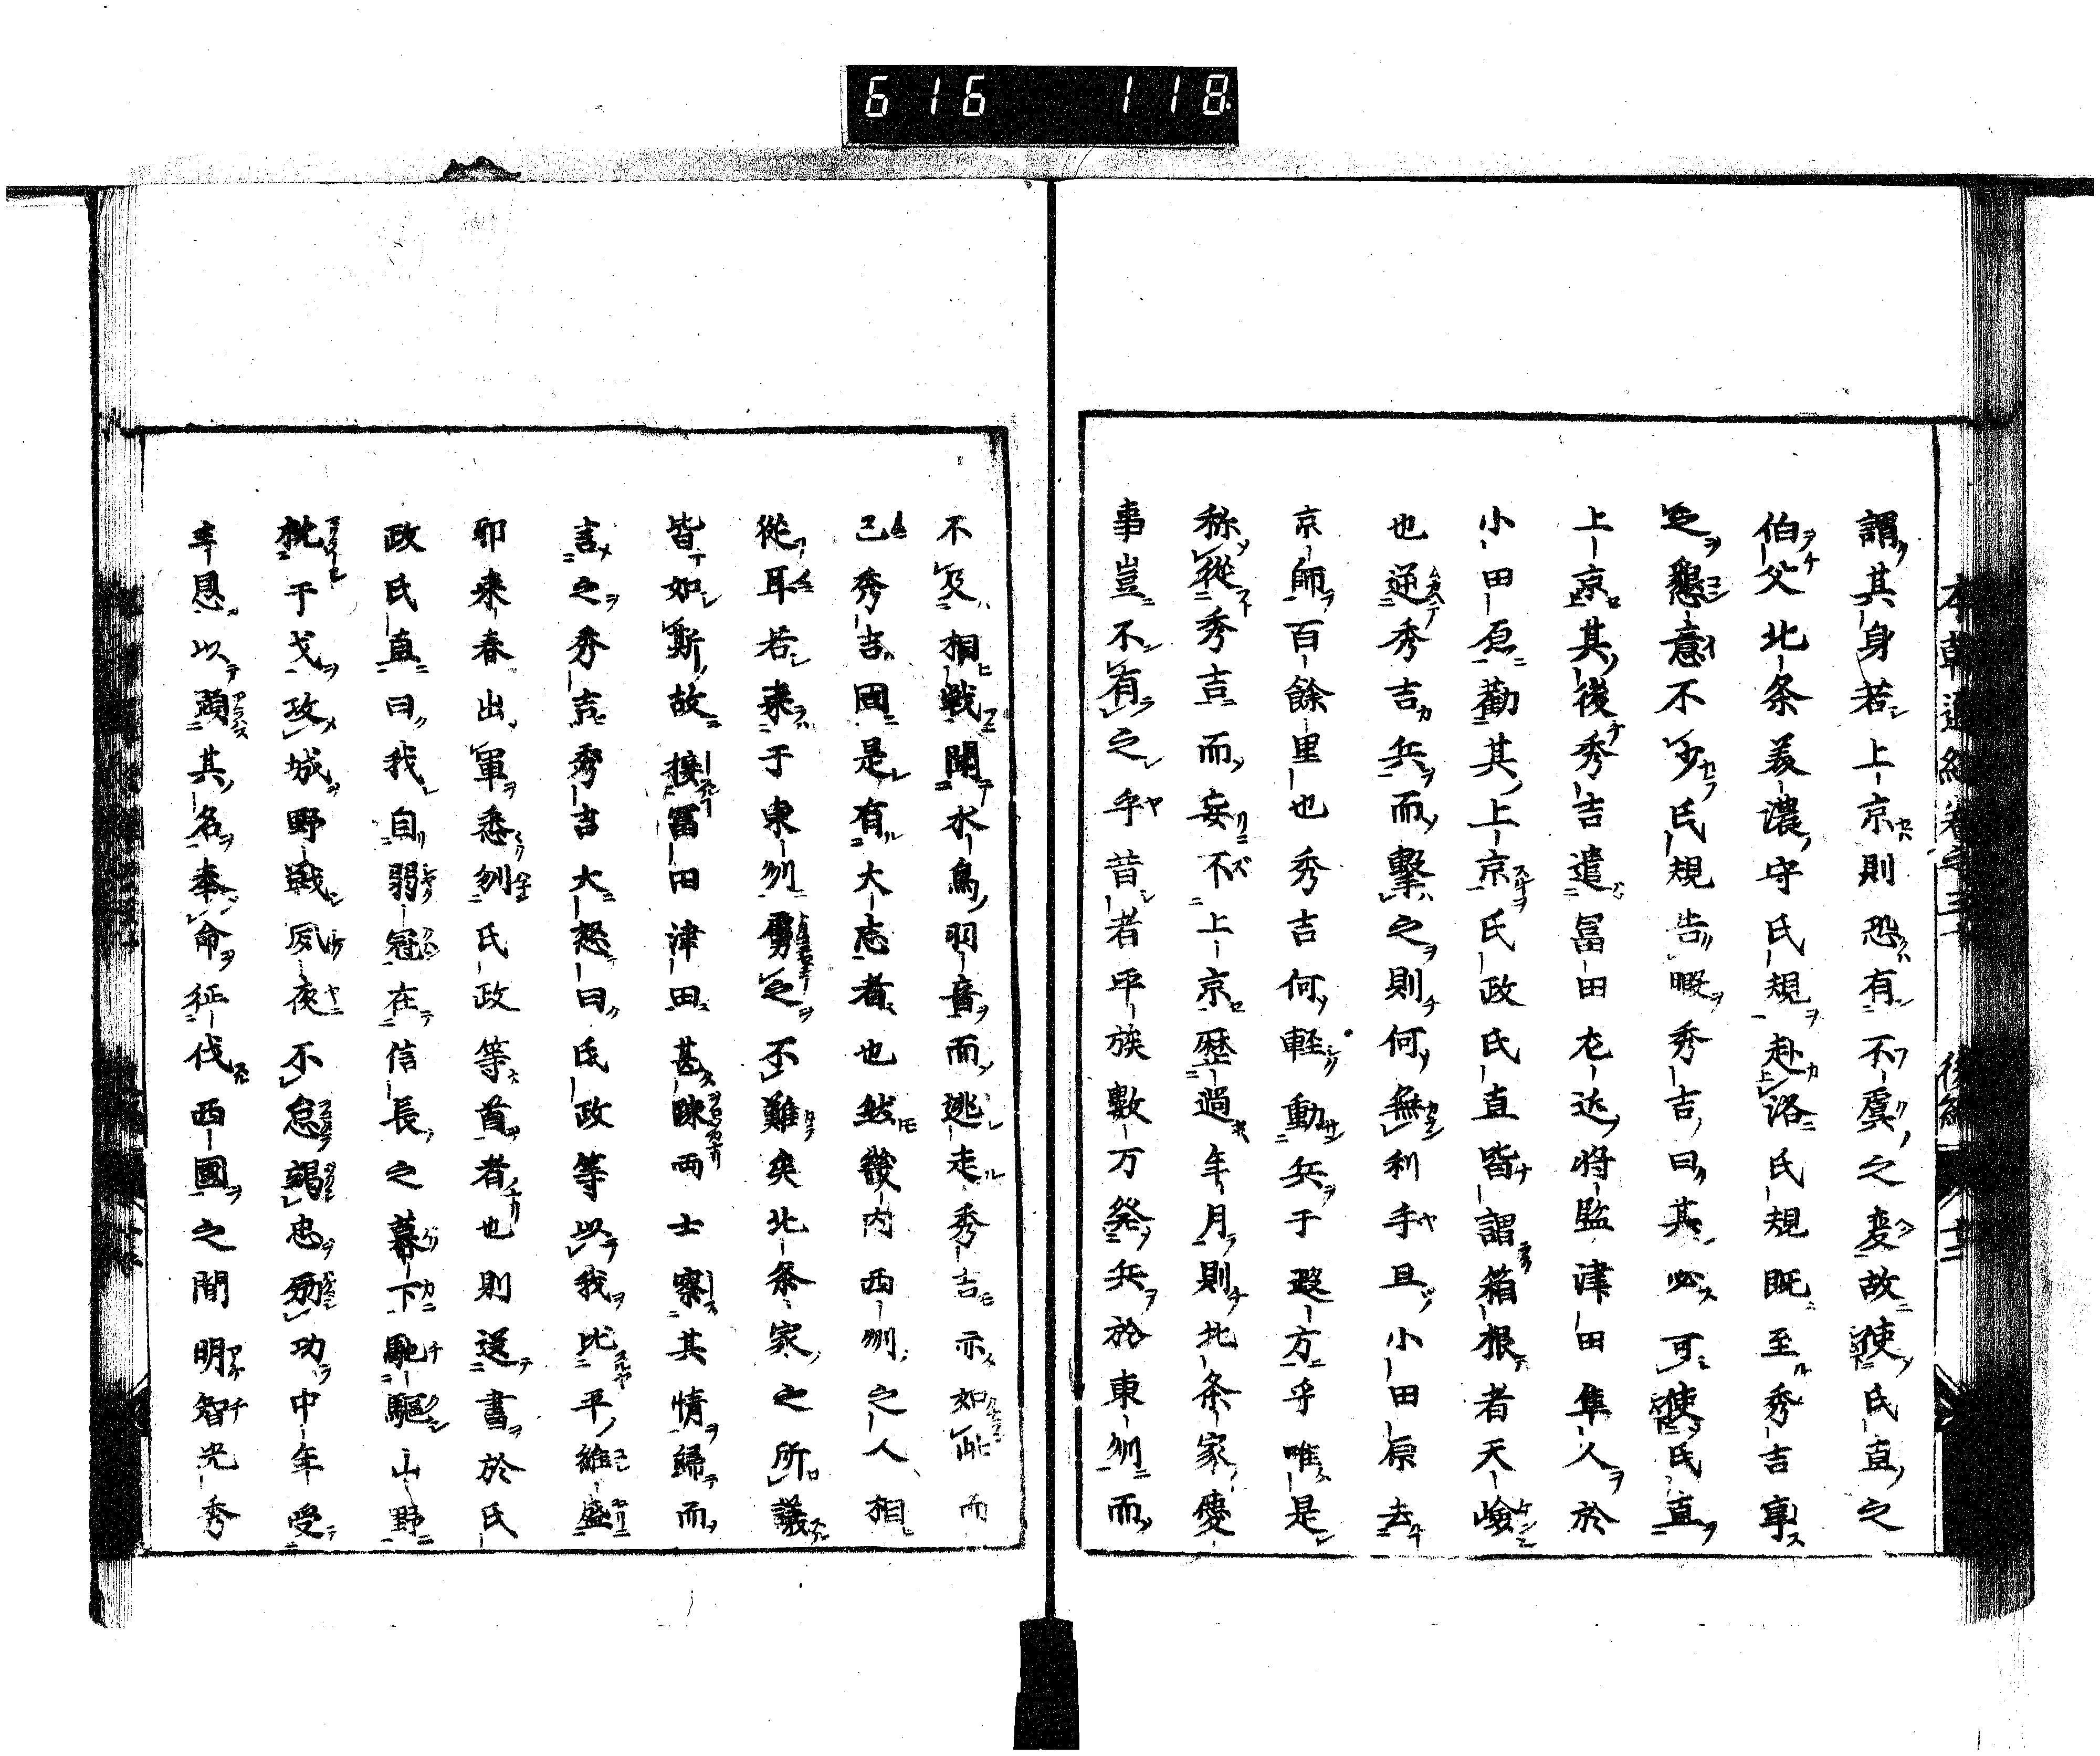 616 118
謂其身若上京則恐有不虞之変故使氏直之
伯父北条美濃守氏規赴洛氏規既至秀吉寧
之懇意不少氏規告暇秀吉曰其必可使氏直
上京其後秀吉遣冨田左近将監津田隼人於
小田原勧其上京氏政氏直皆謂箱根者天嶮
也逆秀吉兵而撃之則何無利乎且小田原去
京師百餘里也秀吉何軽動兵于遐方乎唯是
称從秀吉而妄不上京歴過年月則北条家優
事豈不有之乎昔者平族數万発兵於東州而
不及相戦聞水鳥羽音而逃走秀吉亦如此而
已秀吉固是有大志者也然畿内西州之人相
從耳若来于東州虜之不難矣北条家之所議
皆如斯故接冨田津田甚疎両士察其情歸而
言之秀吉秀吉大怒曰氏政等以我比平維盛
耶来春出軍悉刎氏政等首者也則送書於氏
政氏直曰我自弱冠在信長之幕下馳驅山野
枕干戈攻城野戦夙夜不怠竭忠励功中年受
主恩以顕其名奉命征伐西國之間明智光秀